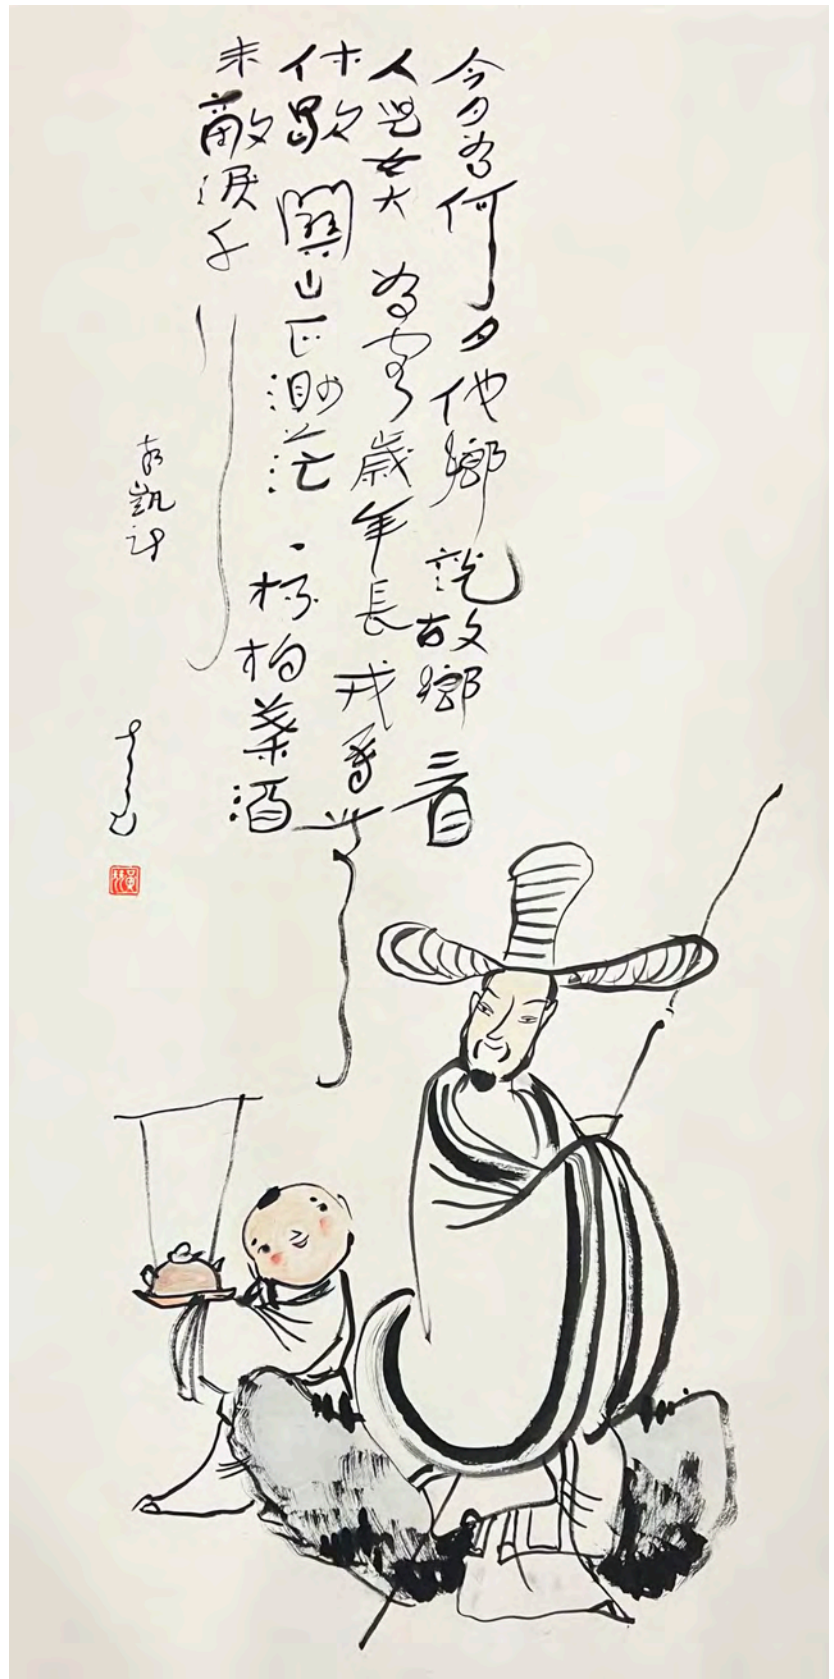 今夕為何夕他鄉説故鄉看
人兒女大為客歲年長戎馬無
休歇關山正渺茫一杯柏葉酒
未敵淚千行
袁凱詩